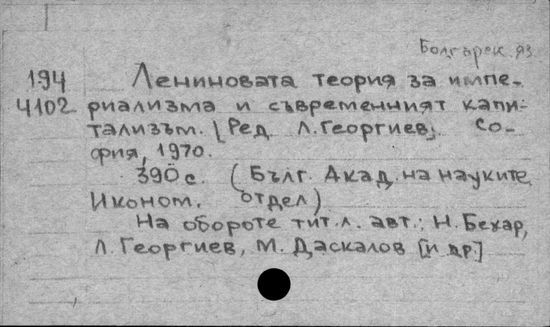 Болгарск. яз
194 Лениновата теория за импе-
4102 риализма и съвременният капи-
тализъм. [Ред. Л. Георгиев]. Со-
фия, 1970.
390 с. (Бълг. Акад. на науките.
Иконом. отдел)
На обороте тит. л. авт.: Н. Бехар,
Л. Георгиев, М. Даскалов [и др.]